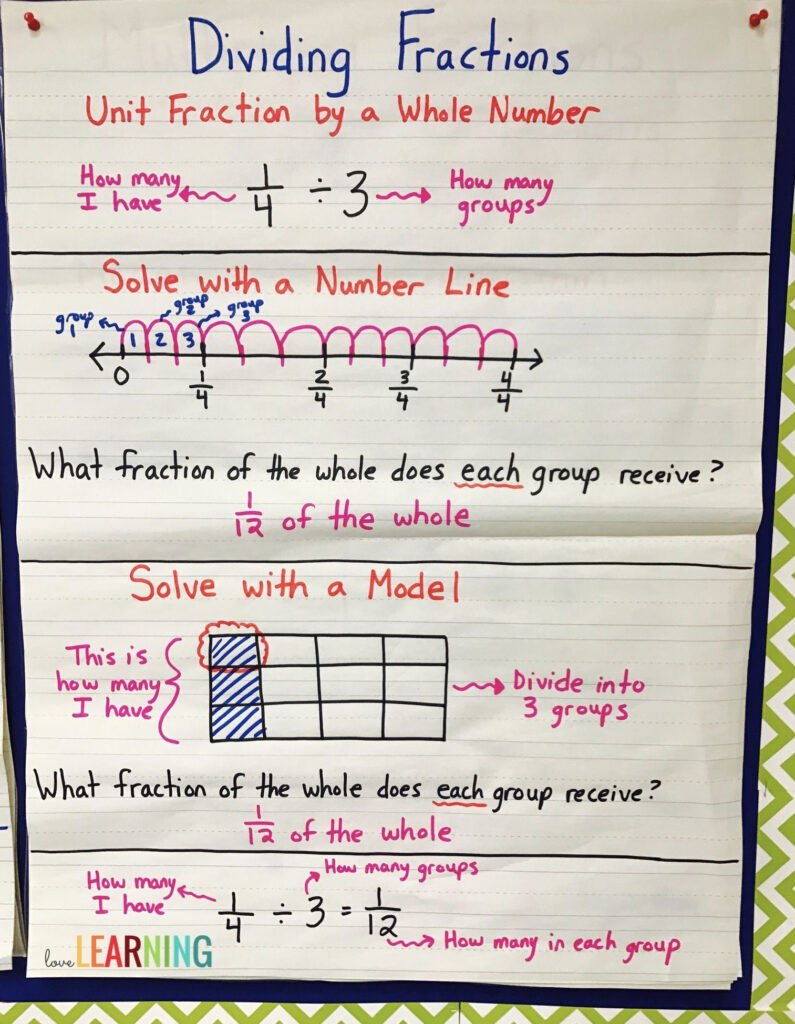 Dividing Fractions
Unit Fraction by a Whole Number
How many I have
1/4 ÷ 3
How many groups
Solve with a Number Line
group 1
group 2
group 3
1 2 3
0 1/4 2/4 3/4 4/4
What fraction of the whole does each group receive?
1/12 of the whole
Solve with a Model
This is how many I have
Divide into 3 groups
What fraction of the whole does each group receive?
1/12 of the whole
How many groups
How many I have
1/4 ÷ 3 = 1/12
How many in each group
love LEARNING